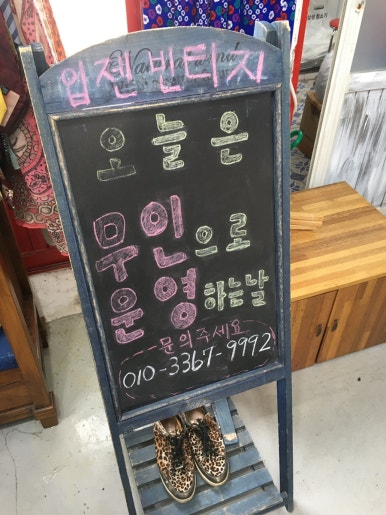 입젠빈티지
오늘은
무인으로
운영하는날
문의주세요
010-3367-9992